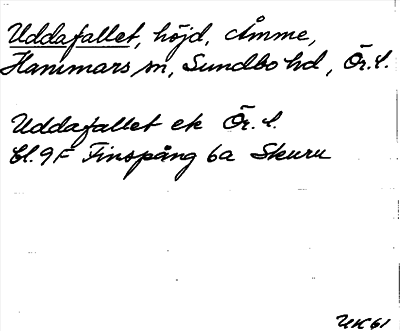 Uddafallet, höjd, Åmme,
Hammars sn, Sundbo hd, Ör. l.
Uddafallet ek Ör. l.
Bl. 9F Finspång 6a Skuru
UK 61